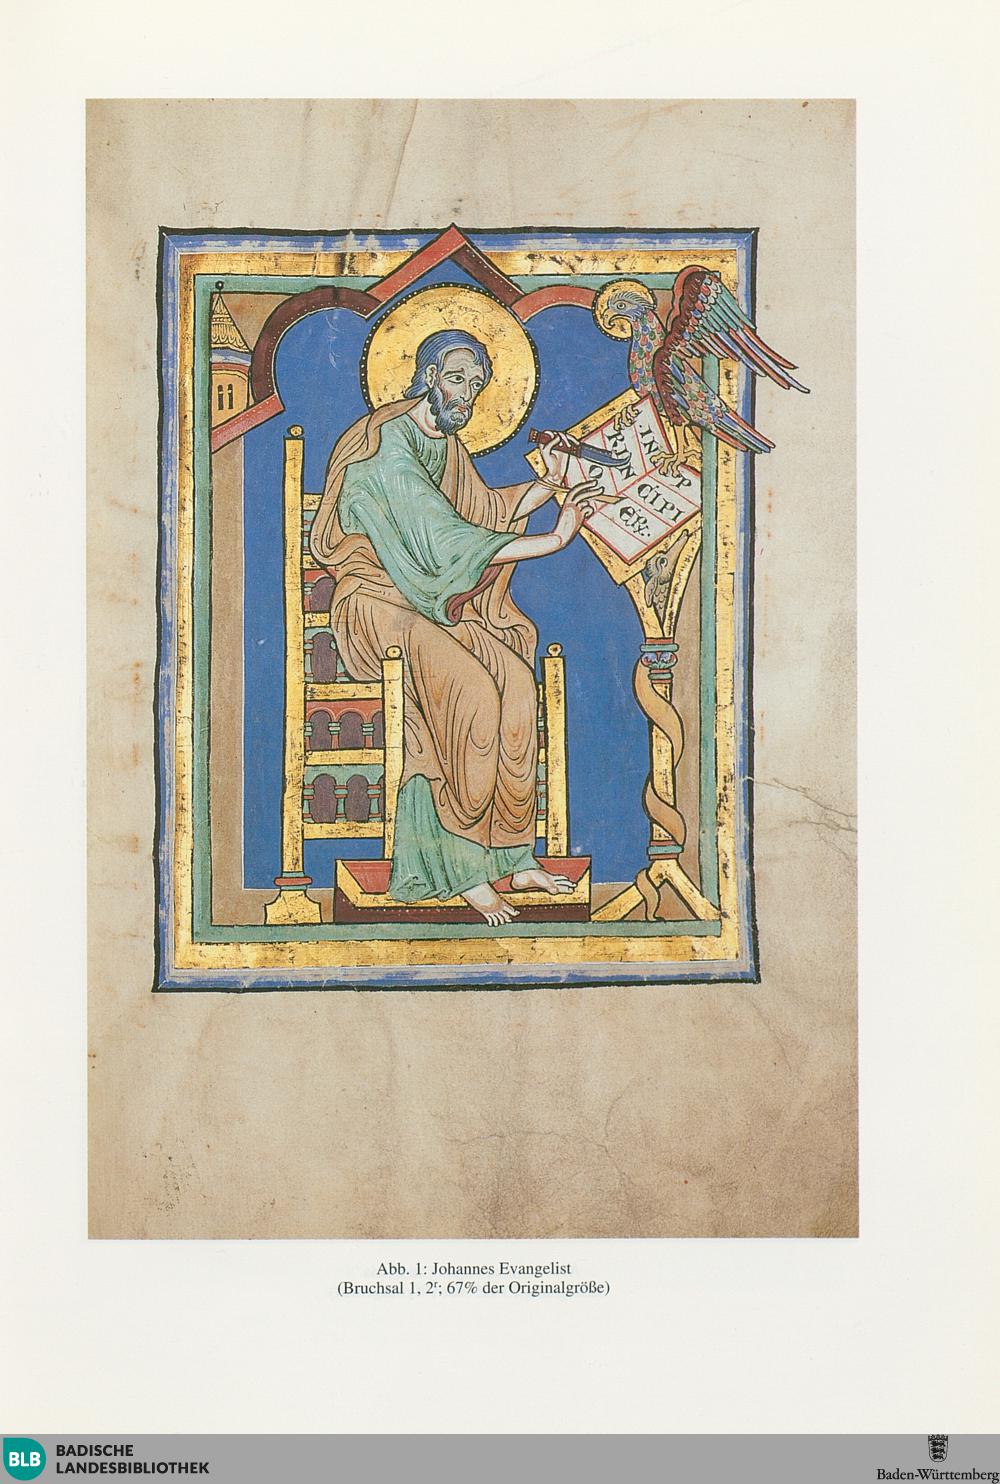 ·IN P
RIN CIPI
O ER̅·
Abb. 1: Johannes Evangelist
(Bruchsal 1, 2ʳ; 67% der Originalgröße)
BLB
BADISCHE
LANDESBIBLIOTHEK
Baden-Württemberg